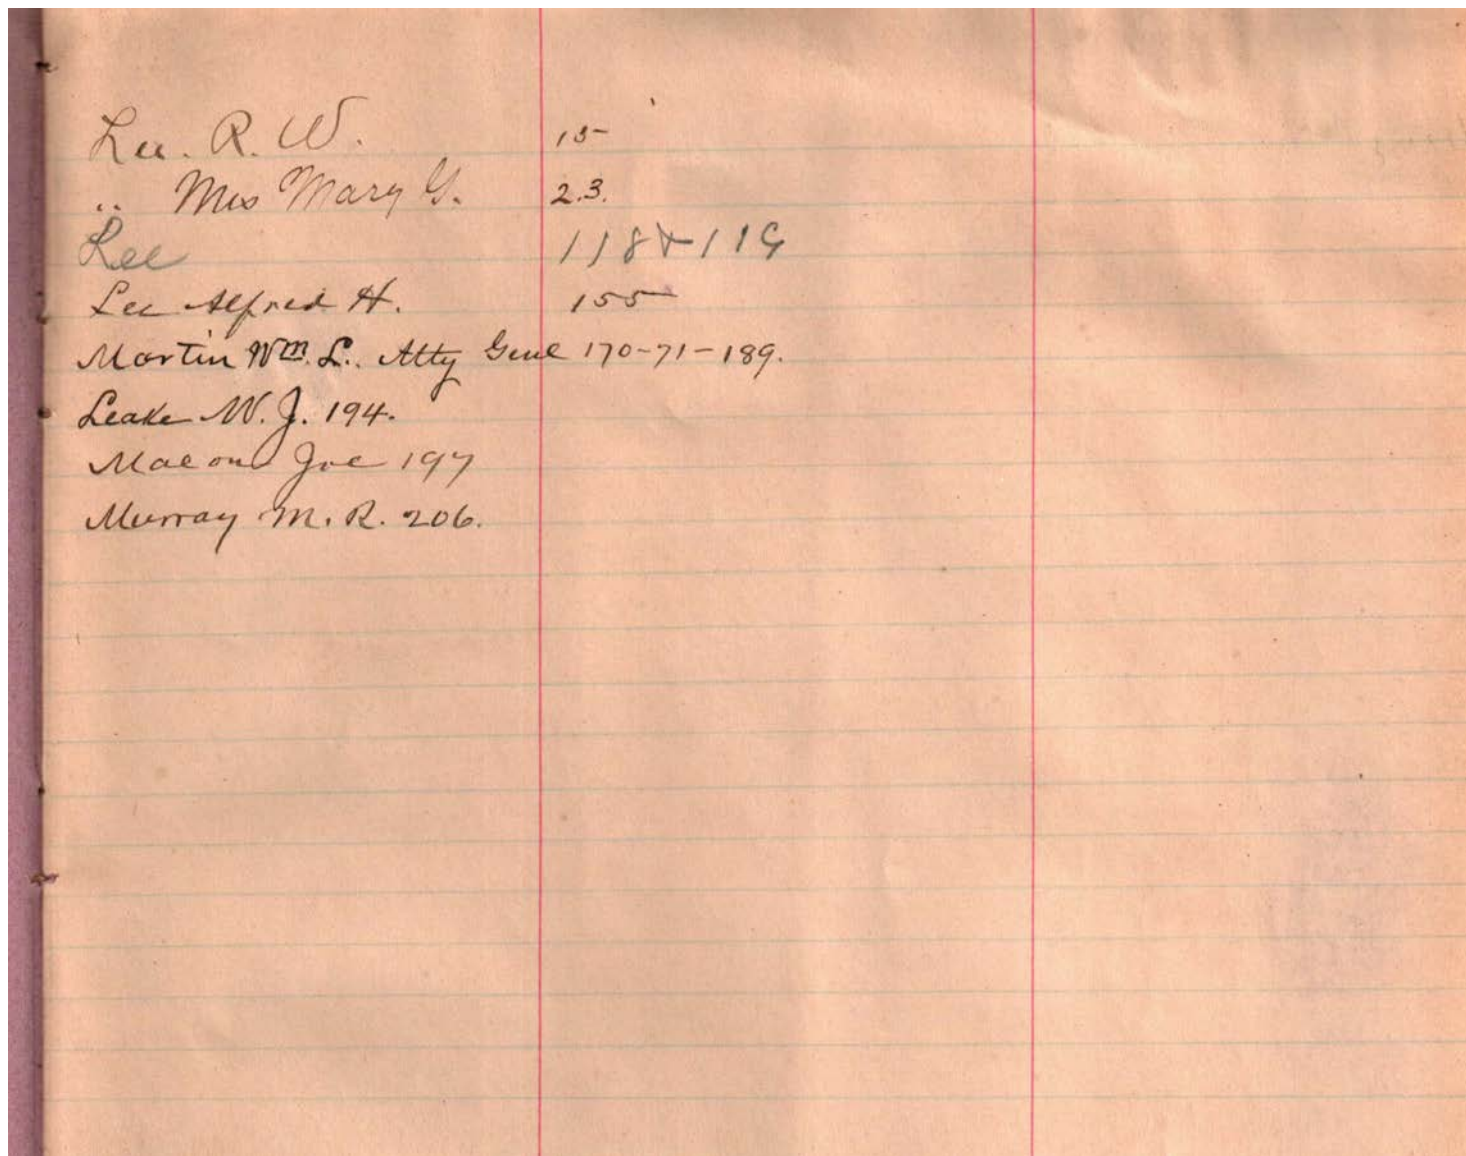 Lee. R. W. 15
.. Mrs Mary G. 2.3.
Lee 118 & 119
Lee Alfred H. 155
Martin Wm. L.. Atty Genl 170-71-189.
Leake W. J. 194.
Macon Joe 197
Murray M. R. 206.